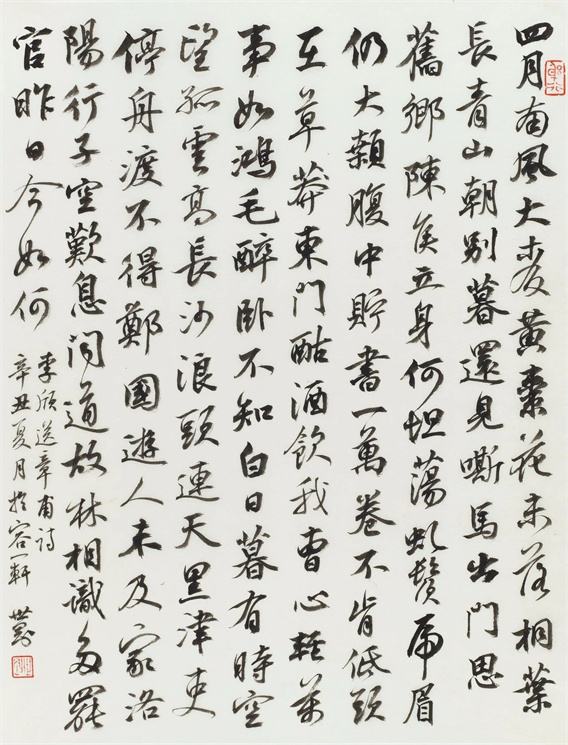 四月南風大麥黃棗花未落桐葉
長青山朝別暮還見嘶馬出門思
舊鄉陳侯立身何坦蕩虬鬚虎眉
仍大顙腹中貯書一萬卷不肯低頭
在草莽東門酤酒飲我曹心輕萬
事如鴻毛醉臥不知白日暮有時空
望孤雲高長河浪頭連天黑津吏
停舟渡不得鄭國遊人未及家洛
陽行子空歎息聞道故林相識多罷
官昨日今如何
李頎送章甫詩
辛丑夏月於容一軒